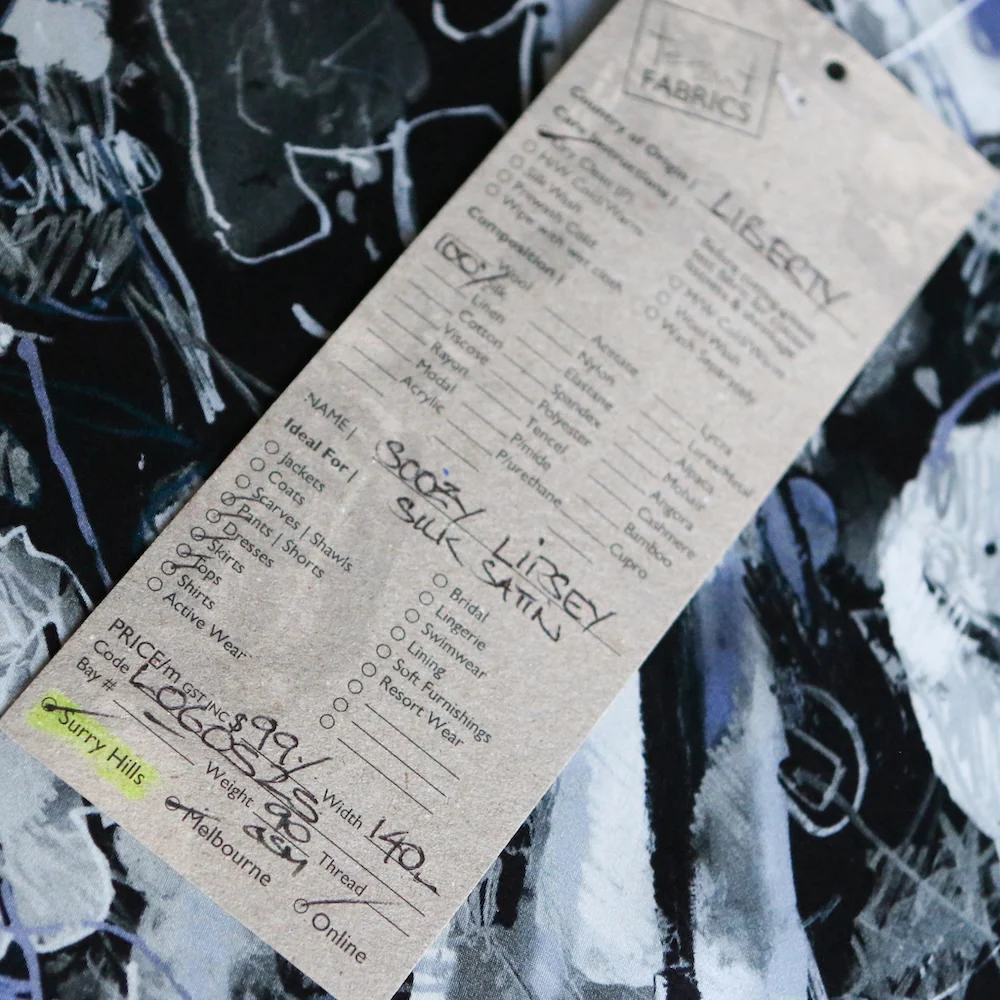 Tessuti
FABRICS
Country of Origin | LIBERTY
Care Instructions |
Dry Clean (P)
H/W Cold/Warm
Silk Wash
Prewash Cold
Wipe with wet cloth
Before cutting always
M/W Cold/Warm
Wash Separately
Composition |
Wool
100% Silk
Linen
Cotton
Viscose
Rayon
Modal
Acrylic
Acetate
Nylon
Elastane
Spandex
Polyester
Tencel
P/mide
P/urethane
Lycra
Lurex/Metal
Alpaca
Mohair
Angora
Cashmere
Bamboo
Cupro
NAME | SCOZY LIBSEY
SILK SATIN
Ideal For |
Jackets
Coats
Scarves | Shawls
Pants | Shorts
Dresses
Skirts
Tops
Shirts
Active Wear
Bridal
Lingerie
Swimwear
Lining
Soft Furnishings
Resort Wear
PRICE/m GST INC $99./ Width 140
Code
Bay # Weight 90 GSM Thread
Surry Hills
Melbourne
Online